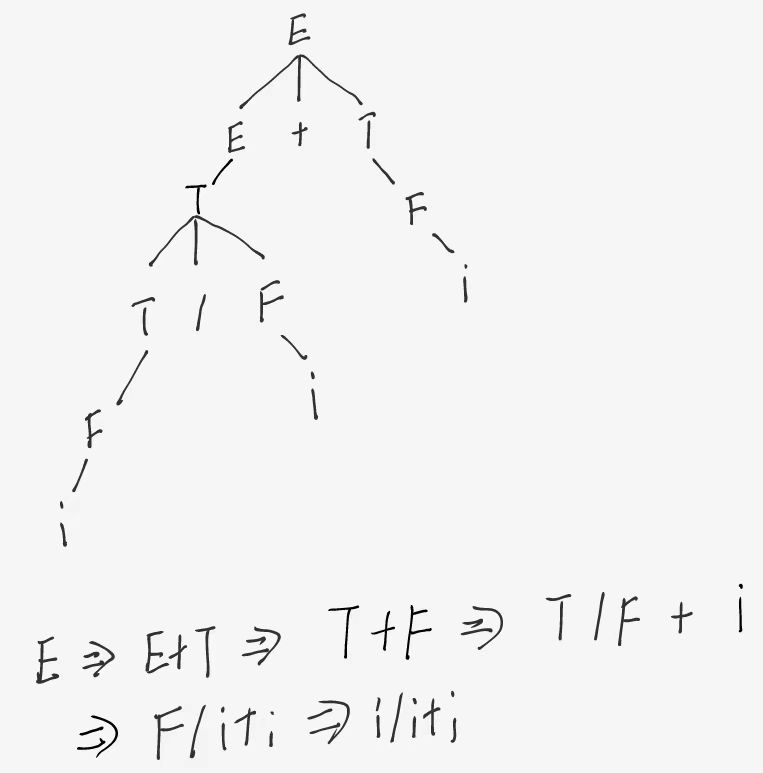 E
E + T
T
F
T / F
i
i
F
i
E ⇒ E+T ⇒ T+F ⇒ T/F + i
⇒ F/i+i ⇒ i/i+i